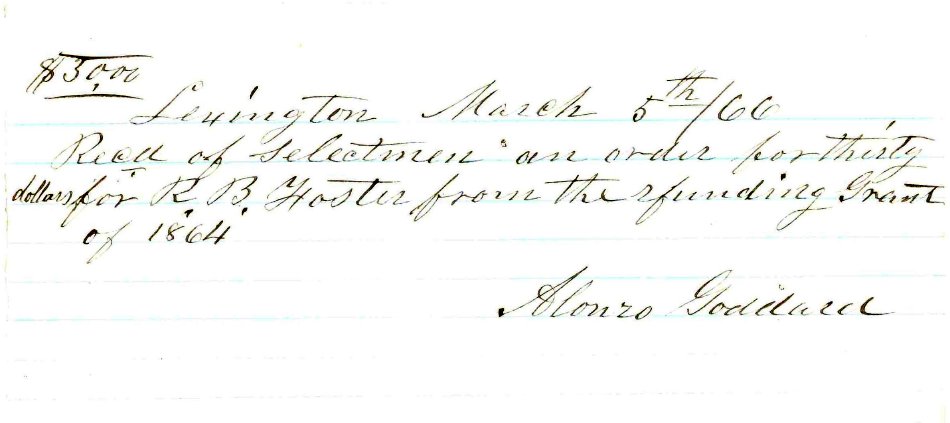 $30.00
Lexington March 5th/66
Recd of Selectmen an order for thirty
dollars for R. B. Foster from the rfunding Grant
of 1864
Alonzo Goddard